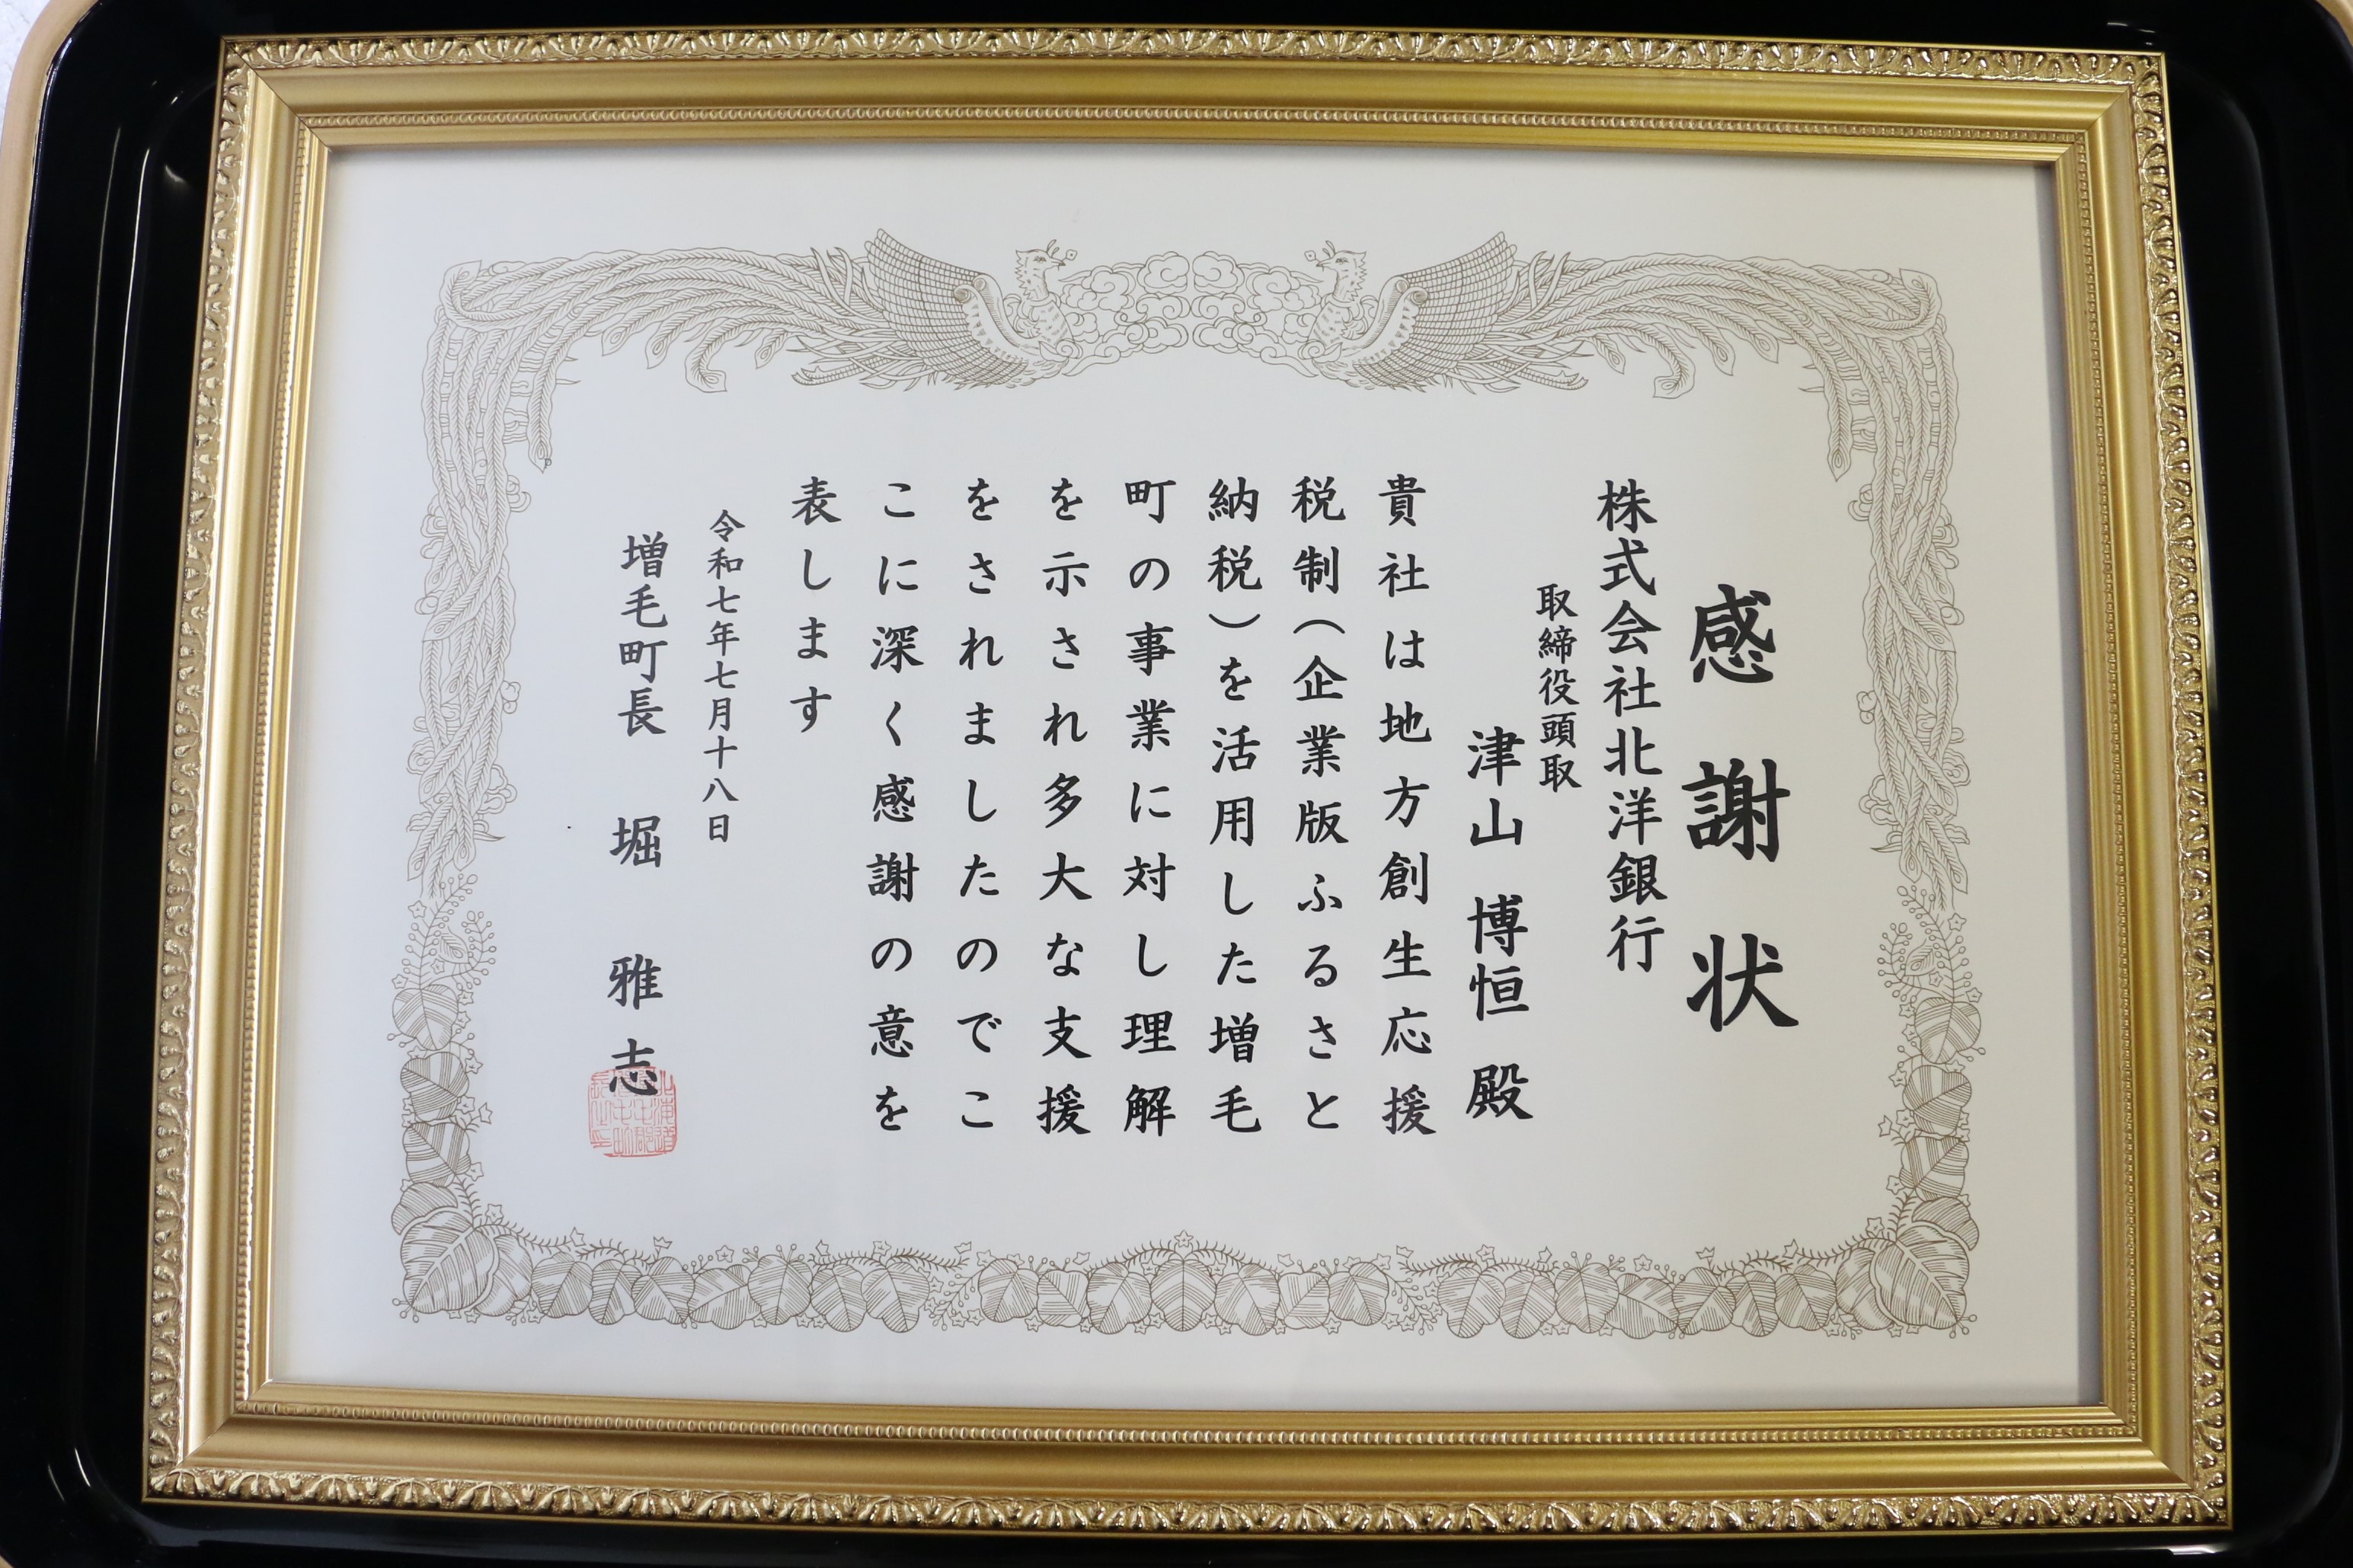 感謝状
株式会社北洋銀行
取締役頭取
津山 博恒 殿
貴社は地方創生応援
税制（企業版ふるさと
納税）を活用した増毛
町の事業に対し理解
を示され多大な支援
をされましたのでこ
こに深く感謝の意を
表します
令和七年七月十八日
増毛町長 堀 雅志